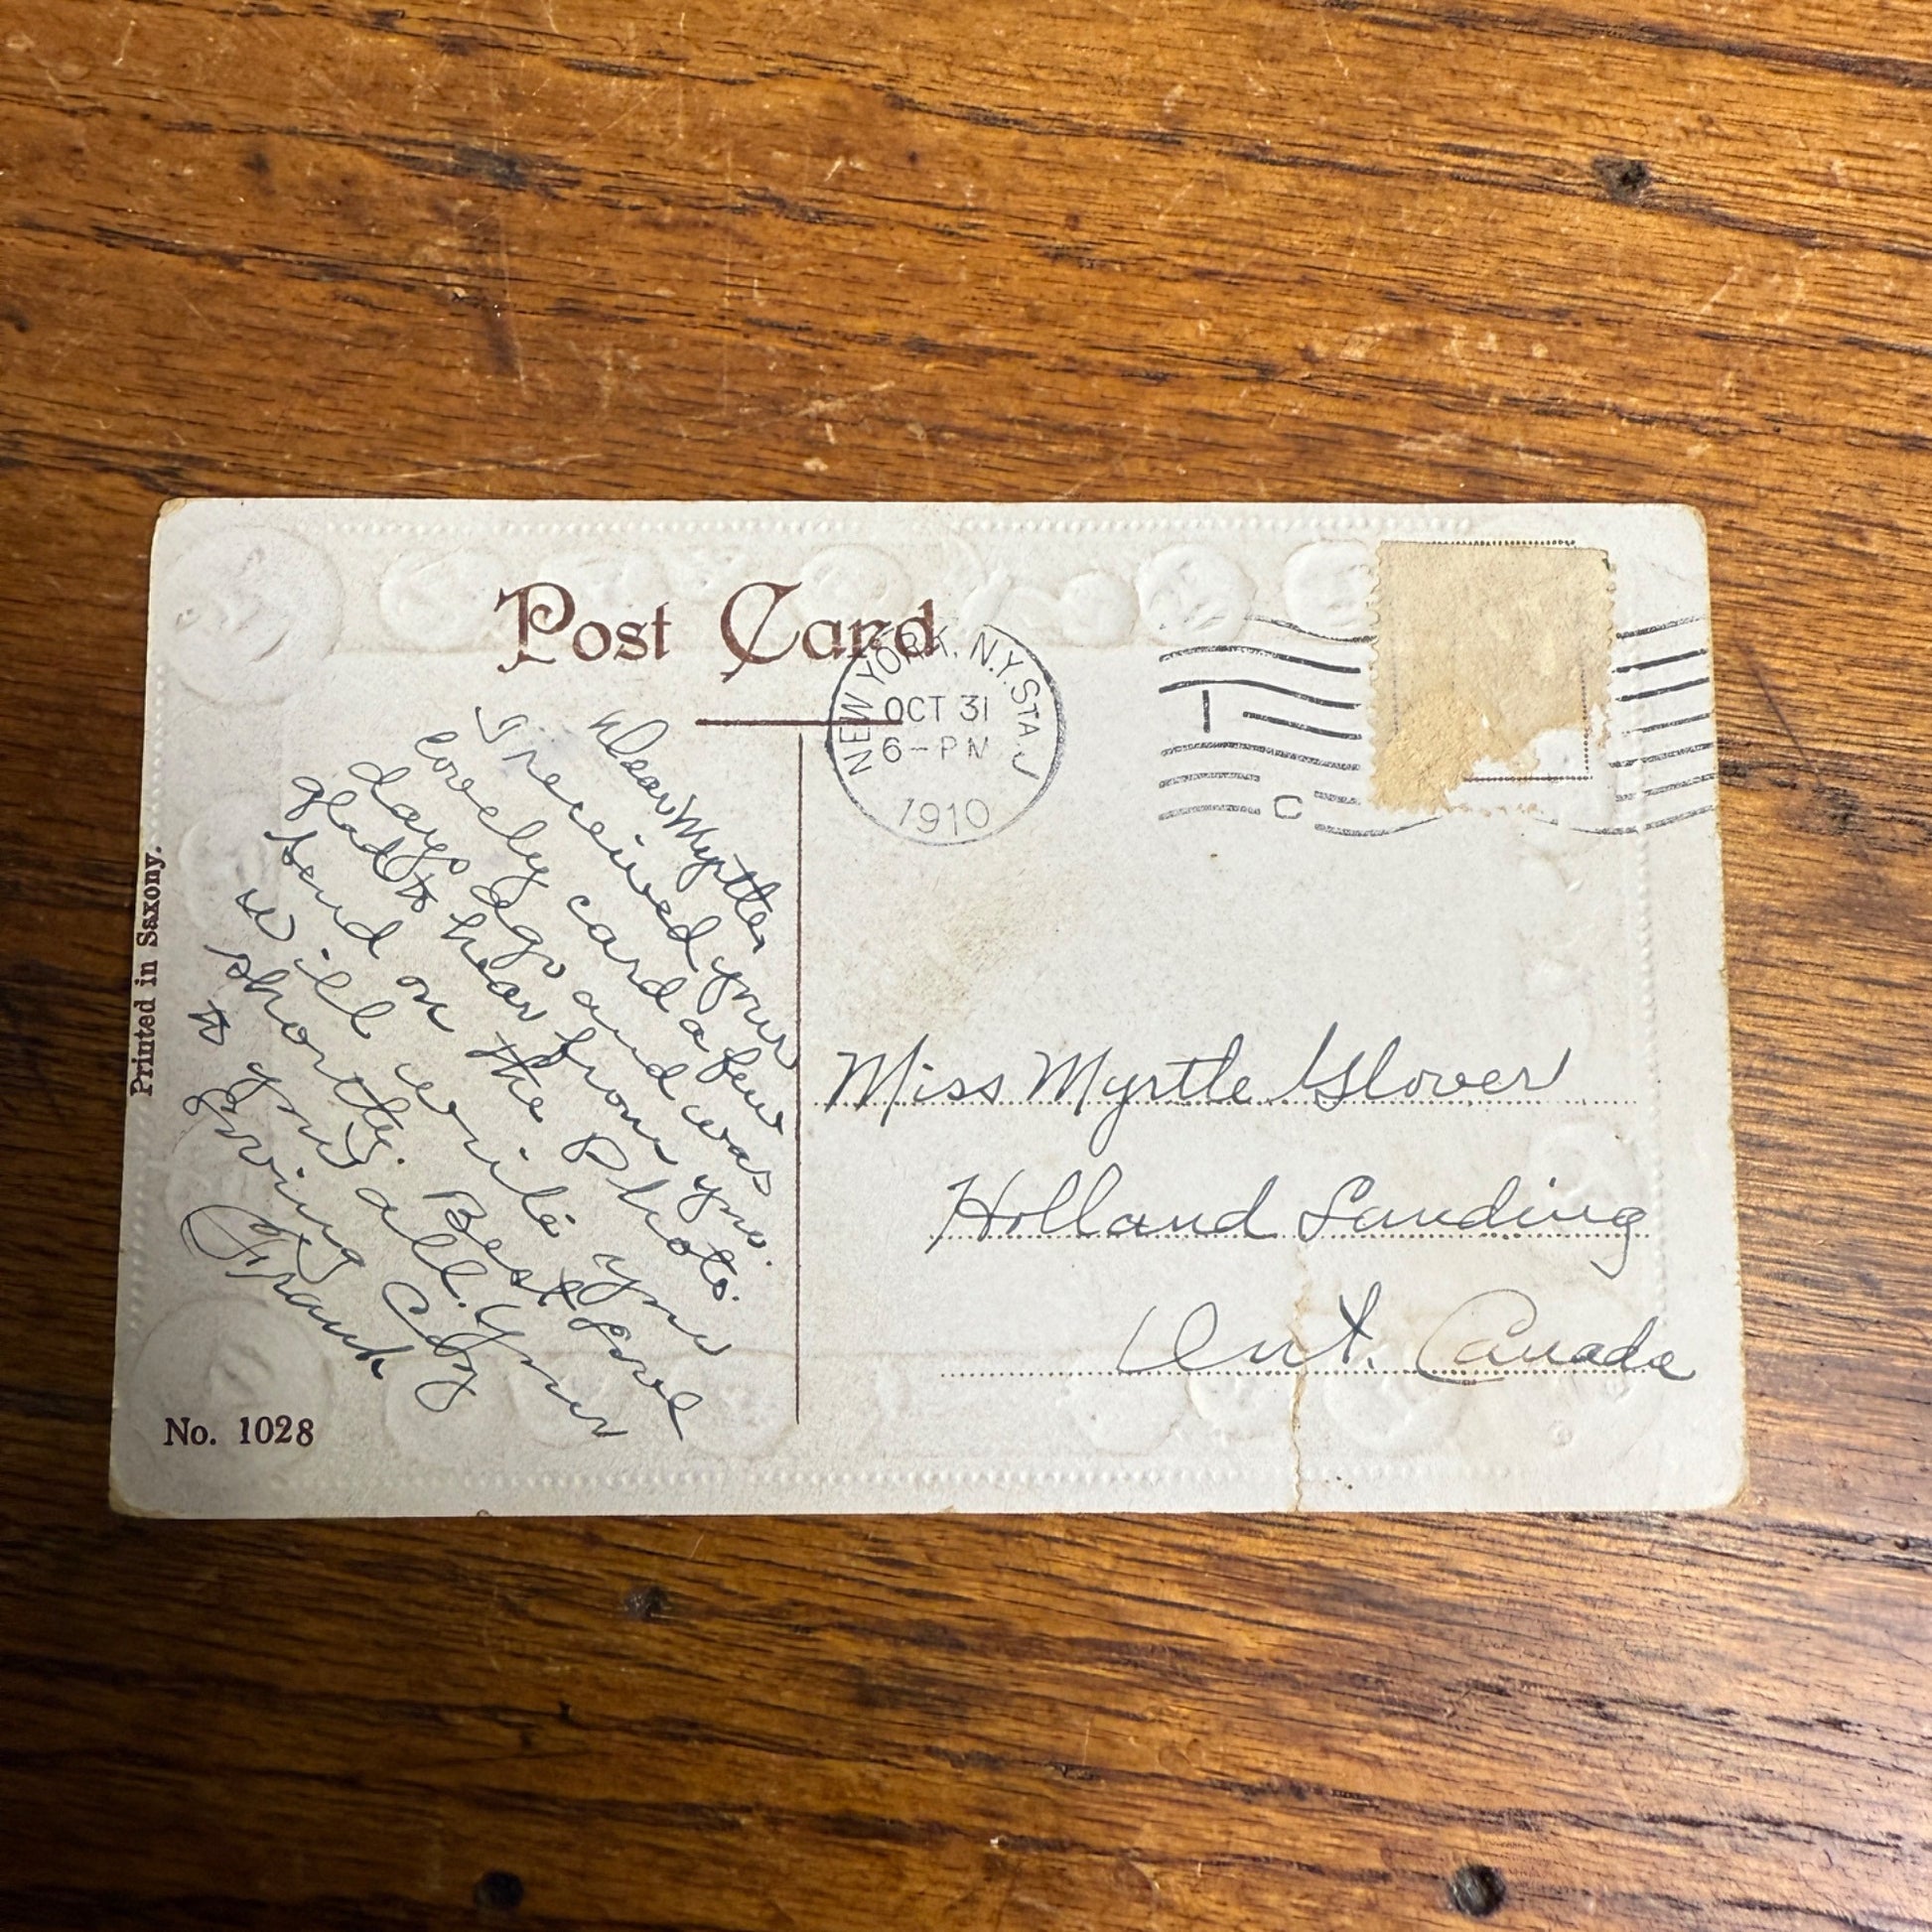 Post Card
NEW YORK, N.Y. STA. J
OCT 31
6-PM
1910
1
C
Dear Myrtle
I received your
lovely card a few
days ago and was
glad to hear from you.
Send on the Photo.
will write you
shortly. Best love
to you all. Your
loving
Frank
Miss Myrtle Glover
Holland Landing
Ont. Canada
Printed in Saxony.
No. 1028